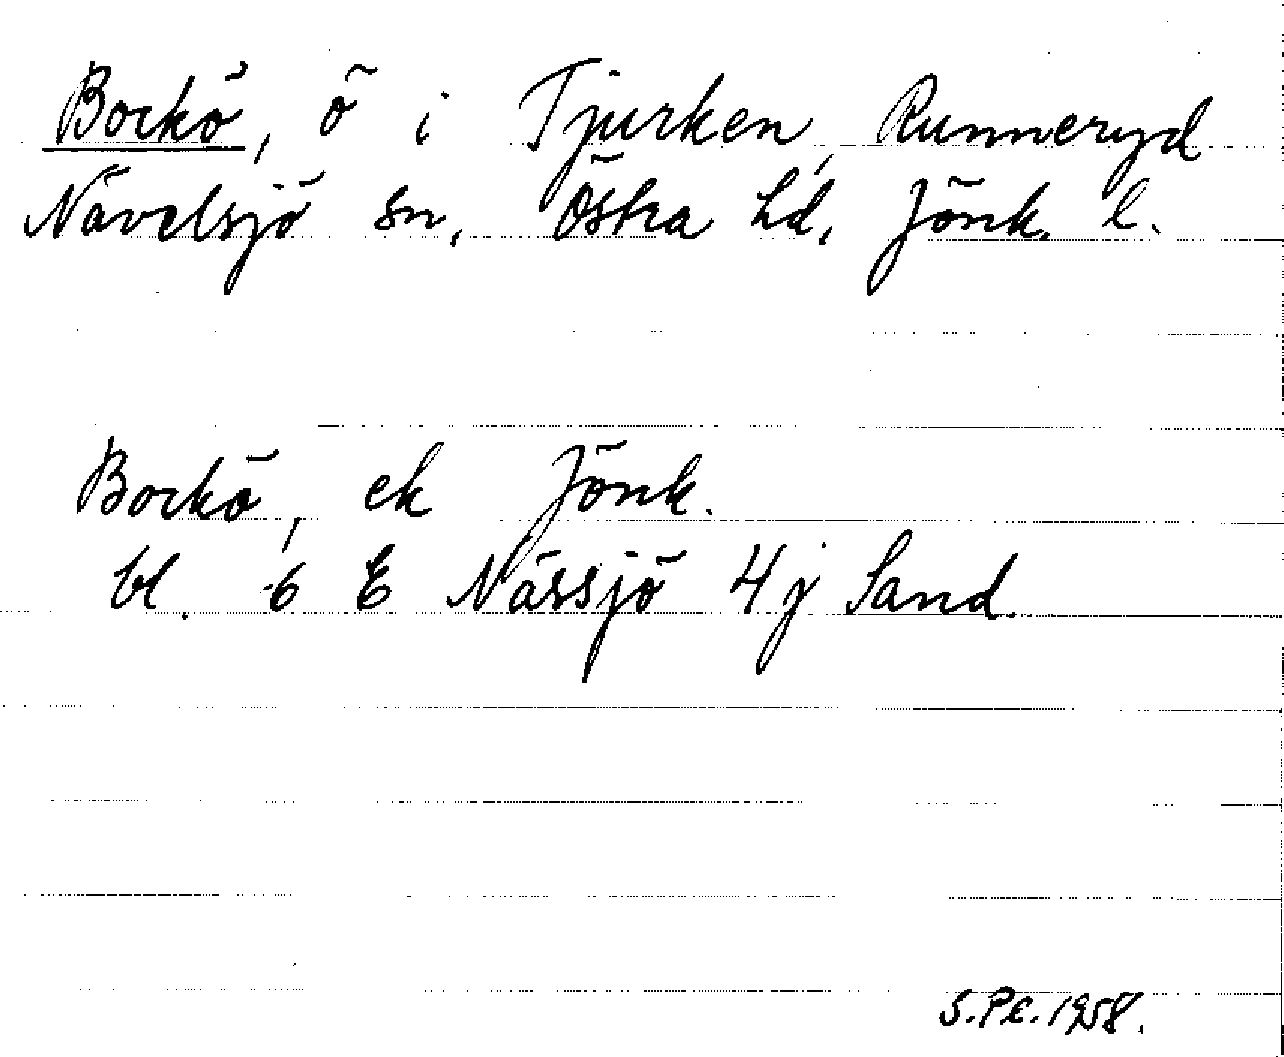 Bockö, ö i Tjurken, Runneryd
Nävelsjö sn, Östra hd, Jönk. l.
Bockö, ek Jönk.
bl. 6 E Nässjö 4 j Sand.
S.P.C. 1958.